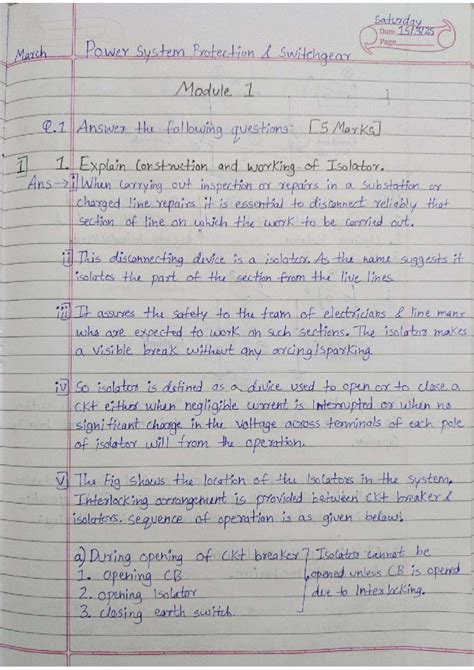 Saturday
Date 15/3/25
Page
March
Power System Protection & Switchgear
Module 1
Q.1 Answer the following questions: [5 Marks]
I 1. Explain Construction and working of Isolator.
Ans → i When carrying out inspection or repairs in a substation or
charged line repairs it is essential to disconnect reliably that
section of line on which the work to be carried out.
ii This disconnecting device is a isolator. As the name suggests it
isolates the part of the section from the live lines
iii It assures the safety to the team of electricians & line mans
who are expected to work on such sections. The isolator makes
a visible break without any arcing/sparking.
iv So isolator is defined as a device used to open or to close a
CKt either when negligible current is Interrupted or when no
significant change in the voltage across terminals of each pole
of isolator will from the operation.
v The Fig shows the location of the Isolators in the system,
Interlocking arrangement is provided between CKt breaker &
isolators. sequence of operation is as given below:
a) During opening of CKt breaker } Isolator cannot be
1. opening CB opened unless CB is opened
2. opening Isolator due to Interlocking.
3. closing earth switch.